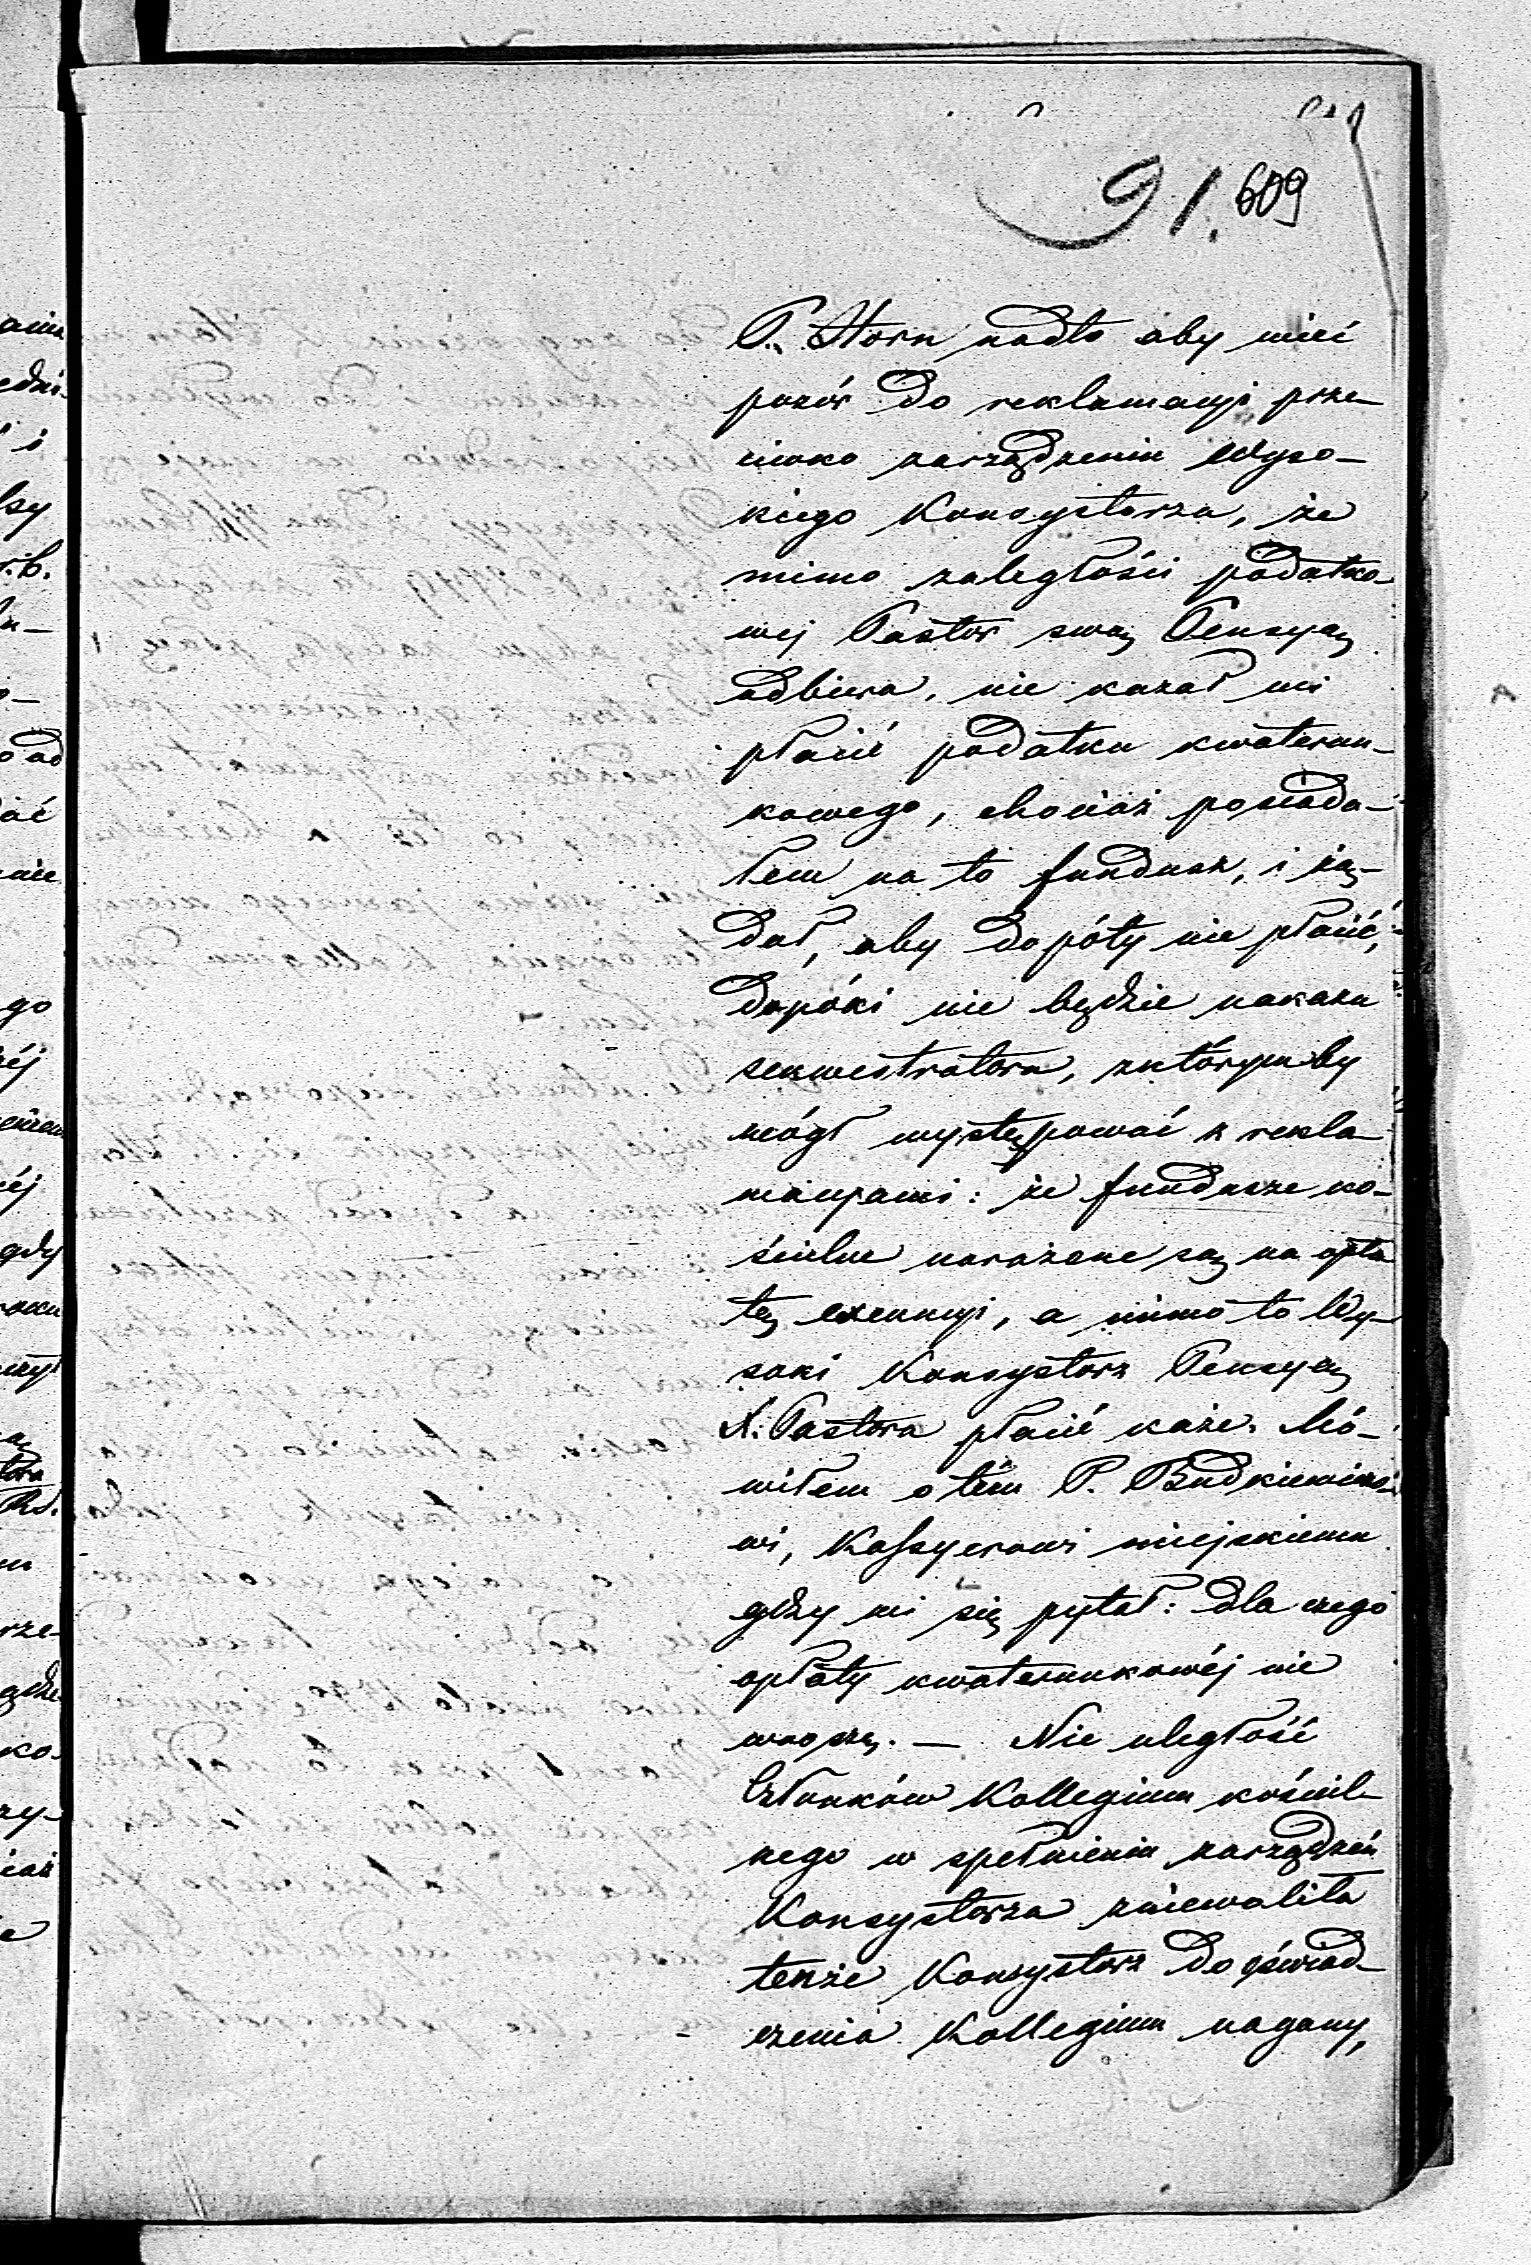 91. 609
P. Horn nadto aby mieć
pozór do reklamacyi prze
ciwko zarządzeniu Wyso-
kiego Konsystorza, że
mimo zaległości podatko-
wej Pastor swą Pensyą
odbiera, nie kazał mi
płacić podatku kwaterun-
kowego, chociaż posiada-
łem na to fundusz, i żą-
dał, aby dopóty nie płacić,
dopóki nie będzie nakazu
sekwestratora, z którymby
mógł występować z rekla-
macyami: że fundusze ko-
ścielne narażone są na opła
tę exekucyi, a mimo to Wy-
soki Konsystorz Pensyą
X. Pastora płacić każe. Mó-
wiłem o tém P. Budkiewiczo-
wi, Kassyerowi miejskiemu
gdy mi się pytał: dla czego
opłaty kwaterunkowéj nie
wnoszę. — Nie uległość
Członków Kollegium kościel-
nego w spełnieniu zarządzeń
Konsystorza zniewoliła
tenże Konsystorz do oświad-
czenia Kollegium nagany,